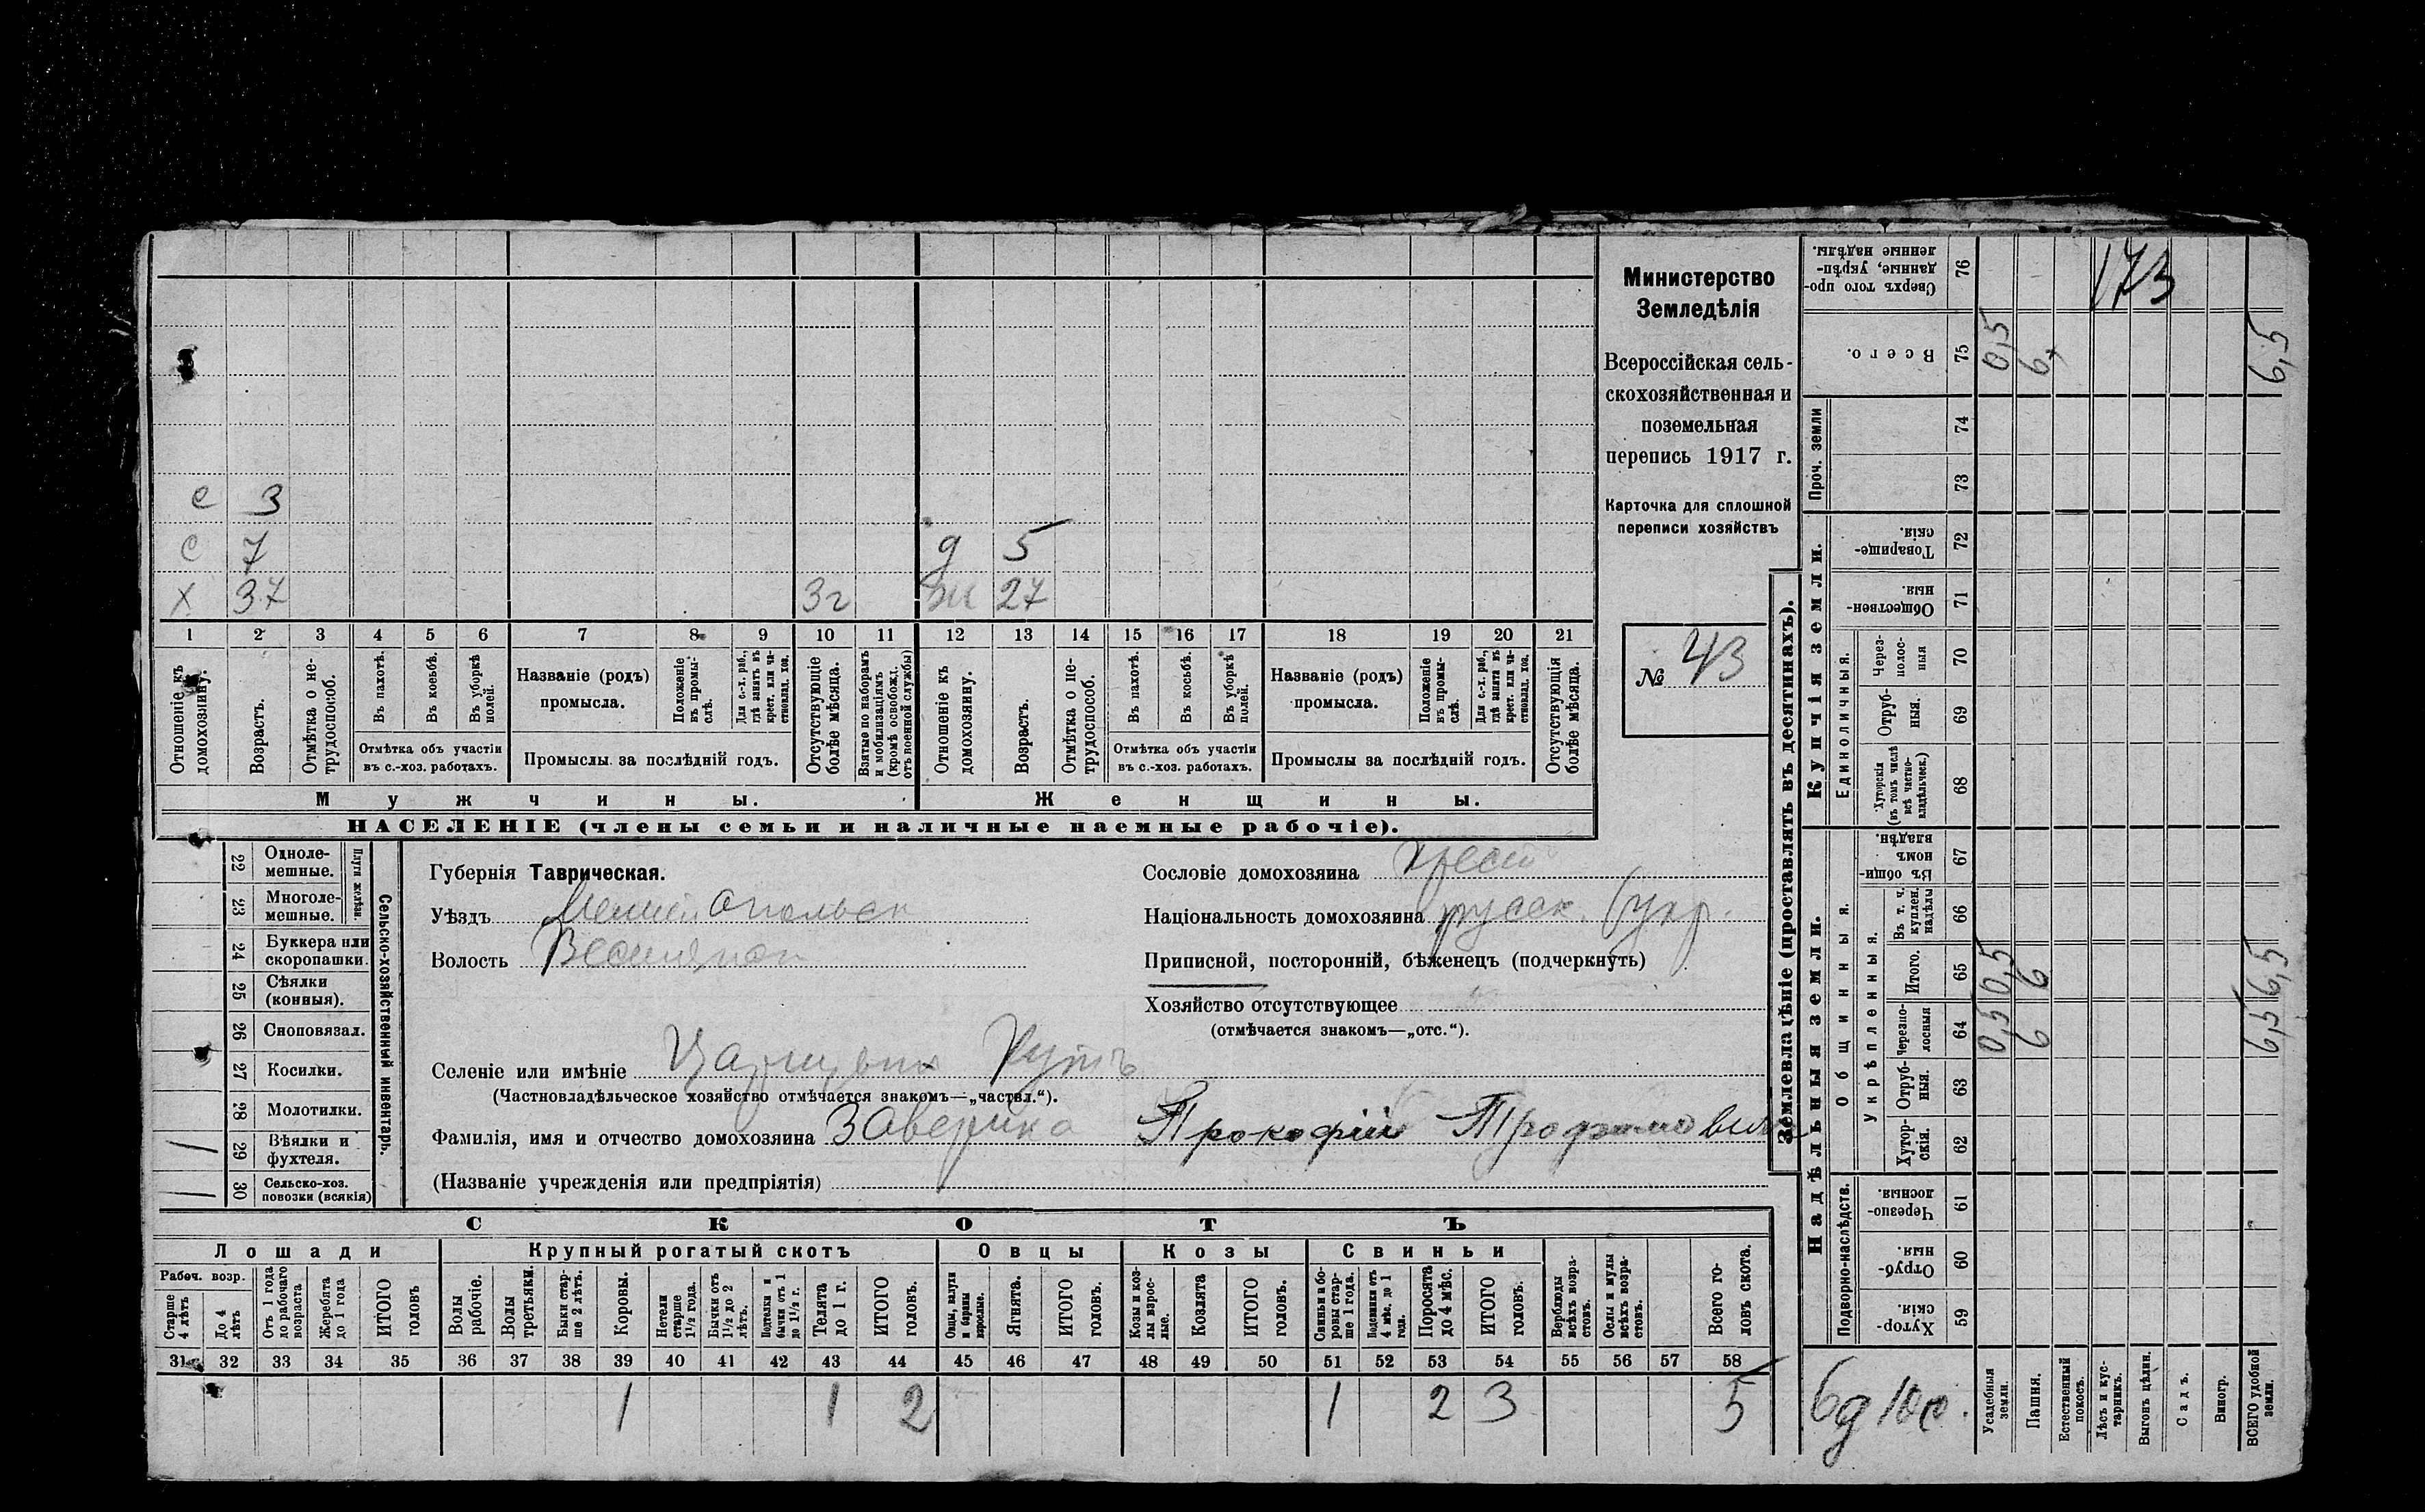 Министерство
Земледѣлія
Всероссійская сель-
скохозяйственная и
поземельная
перепись 1917 г.
Карточка для сплошной
переписи хозяйствъ
№ 43
с 3
с 7 д 5
х 37 3г ж 27
1 2 3 4 5 6 7 8 9 10 11 12 13 14 15 16 17 18 19 20 21
Отношеніе къ домохозяину.
Возрастъ.
Отмѣтка о не-трудоспособ.
Въ пахотѣ.
Въ косьбѣ.
Въ уборкѣ полей.
Отмѣтка объ участіи
въ с.-хоз. работахъ.
Названіе (родъ)
промысла.
Положеніе въ промы-слѣ.
Для с.-х. раб., гдѣ занятъ въ крест. или ча-стновлад. хоз.
Промыслы за послѣдній годъ.
Отсутствующіе болѣе мѣсяца.
Взятые по наборамъ и мобилизаціямъ (кромѣ освобожд. отъ военной службы)
Отношеніе къ домохозяину.
Возрастъ.
Отмѣтка о не-трудоспособ.
Въ пахотѣ.
Въ косьбѣ.
Въ уборкѣ полей.
Отмѣтка объ участіи
въ с.-хоз. работахъ.
Названіе (родъ)
промысла.
Положеніе въ промы-слѣ.
Для с.-х. раб., гдѣ занята въ крест. или ча-стновлад. хоз.
Промыслы за послѣдній годъ.
Отсутствующія болѣе мѣсяца.
Мужчины. Женщины.
НАСЕЛЕНІЕ (члены семьи и наличные наемные рабочіе).
Сельско-хозяйственный инвентарь.
Плуги желѣзн.
22 Одноле-мешные.
23 Многоле-мешные.
24 Буккера или скоропашки.
25 Сѣялки (конныя).
26 Сноповязал.
27 Косилки.
28 Молотилки.
1 29 Вѣялки и фухтеля.
1 30 Сельско-хоз. повозки (всякія)
Губернія Таврическая.
Уѣздъ Мелитопольск
Волость Веселянск
Сословіе домохозяина крест
Національность домохозяина русск. (укр.
Приписной, посторонній, бѣженецъ (подчеркнуть)
Хозяйство отсутствующее
(отмѣчается знакомъ—„отс.“).
Селеніе или имѣніе Царицынъ Кутъ
(Частновладѣльческое хозяйство отмѣчается знакомъ—„частвл.“).
Фамилія, имя и отчество домохозяина Заверика Прокофій
(Названіе учрежденія или предпріятія)
СКОТЪ
Лошади Крупный рогатый скотъ Овцы Козы Свиньи
Рабоч. возр.
Старше 4 лѣтъ
До 4 лѣтъ
Отъ 1 года до рабочаго возраста
Жеребята до 1 года
ИТОГО головъ
Волы рабочіе.
Волы третьяки.
Быки стар-ше 2 лѣтъ.
Коровы.
Нетели старше 1½ года.
Бычки отъ 1½ до 2 лѣтъ.
Подтелки и бычки отъ 1 до 1½ г.
Телята до 1 г.
ИТОГО головъ.
Овцы, валухи и бараны взрослые.
Ягнята.
ИТОГО головъ.
Козы и коз-лы взрос-лые.
Козлята
ИТОГО головъ.
Свиньи и бо-ровы стар-ше 1 года.
Подсвинки отъ 4 мѣс. до 1 года.
Поросята до 4 мѣс.
ИТОГО головъ.
Верблюды всѣхъ возра-стовъ.
Ослы и мулы всѣхъ возра-стовъ.
Всего го-ловъ скота.
31 32 33 34 35 36 37 38 39 40 41 42 43 44 45 46 47 48 49 50 51 52 53 54 55 56 57 58
1 1 2 1 2 3 5
Землевладѣніе (проставлять въ десятинахъ).
Купчія земли.
Надѣльныя земли.
Проч. земли
Единоличныя.
Общинныя.
Укрѣпленныя.
Подворно-наслѣдств.
Сверхъ того про-данные, укрѣп-ленные надѣлы. 76 173
Всего. 75 0,5 6 6,5
74
73
Товарище-скія 72
Обществен-ныя. 71
Черезполос-ныя 70
Отруб-ныя. 69
Хуторскія (въ томъ числѣ всѣ частно-владѣльческ.) 68
Въ общин-номъ владѣн. 67
Въ т. ч. куплен. надѣлы 66
Итого. 65 0,5 6 6,5
Черезпо-лосныя 64 0,5 6 6,5
Отруб-ныя. 63
Хутор-скія. 62
Черезпо-лосныя. 61
Отруб-ныя. 60
Хутор-скія 59
Усадебныя земли.
Пашня.
Естественный покосъ.
Лѣсъ и кус-тарникъ.
Выгонъ цѣлин.
Садъ.
Виногр.
ВСЕГО удобной земли.